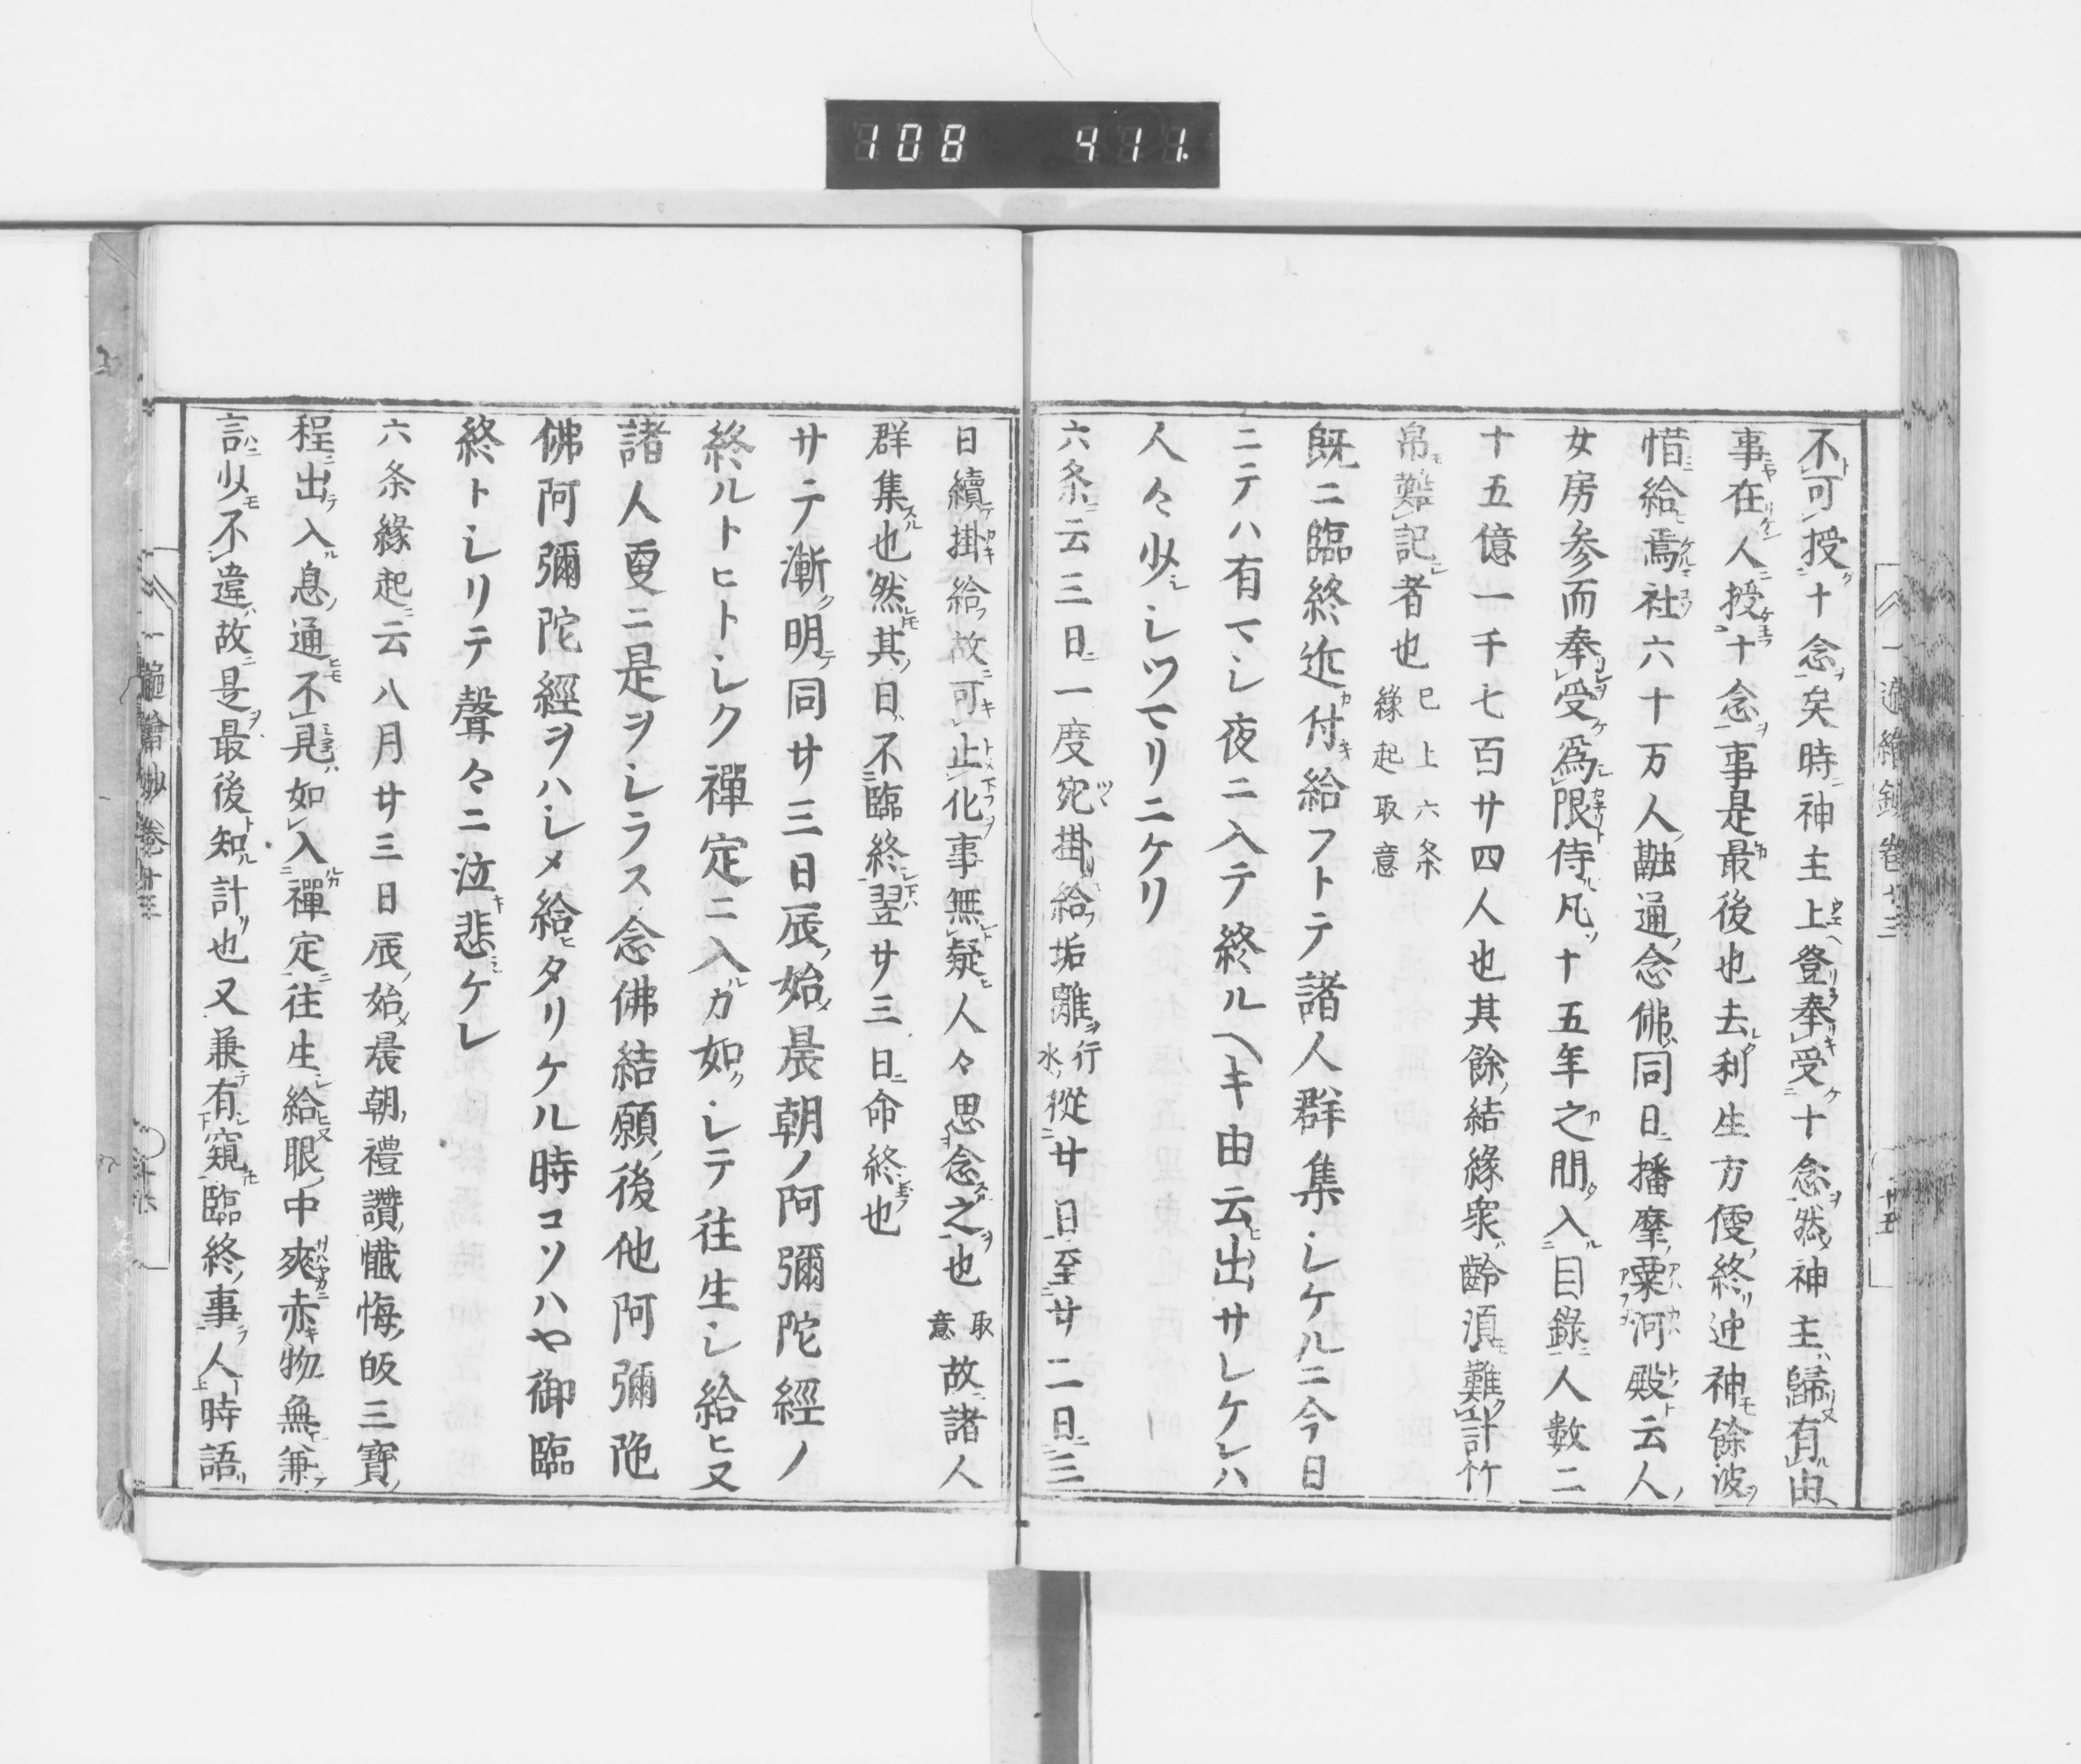 108 411.
不可授十念矣時神主上登奉受十念然神主歸有由
事在人授十念事是最後也去利生方便終迚神餘波
惜給焉社六十万人融通念佛同日播摩粟河殿云人
女房参而奉受爲限侍凡十五年之間入目錄人數二
十五億一千七百廿四人也其餘結緣衆齡須難計竹
帛難記者也 已上六条緣起取意
既ニ臨終近付給フトテ諸人群集シケルニ今日
ニテハ有マシ夜ニ入テ終ルヘキ由云出サレケレハ
人々少シツマリニケリ
六条云三日一度宛掛給垢離行水從廿日至廿二日三
日續掛給故可止化事無疑人々思念之也 取意 故諸人
群集也然其日不臨終翌廿三日命終也
サテ漸明同廿三日辰始晨朝ノ阿彌陀經ノ
終ルトヒトシク禪定ニ入カ如シテ往生シ給ヒヌ
諸人更ニ是ヲシラス念佛結願後他阿彌陁
佛阿彌陀經ヲハシメ給ヒタリケル時コソハヤ御臨
終トシリテ聲々ニ泣悲ケレ
六条緣起云八月廿三日辰始晨朝禮讚懺悔皈三寶
程出入息通不見如入禪定往生給眼中爽赤物無兼
言少不違故是最後知計也又兼有窺臨終事人時語
一遍繪鈔卷十三